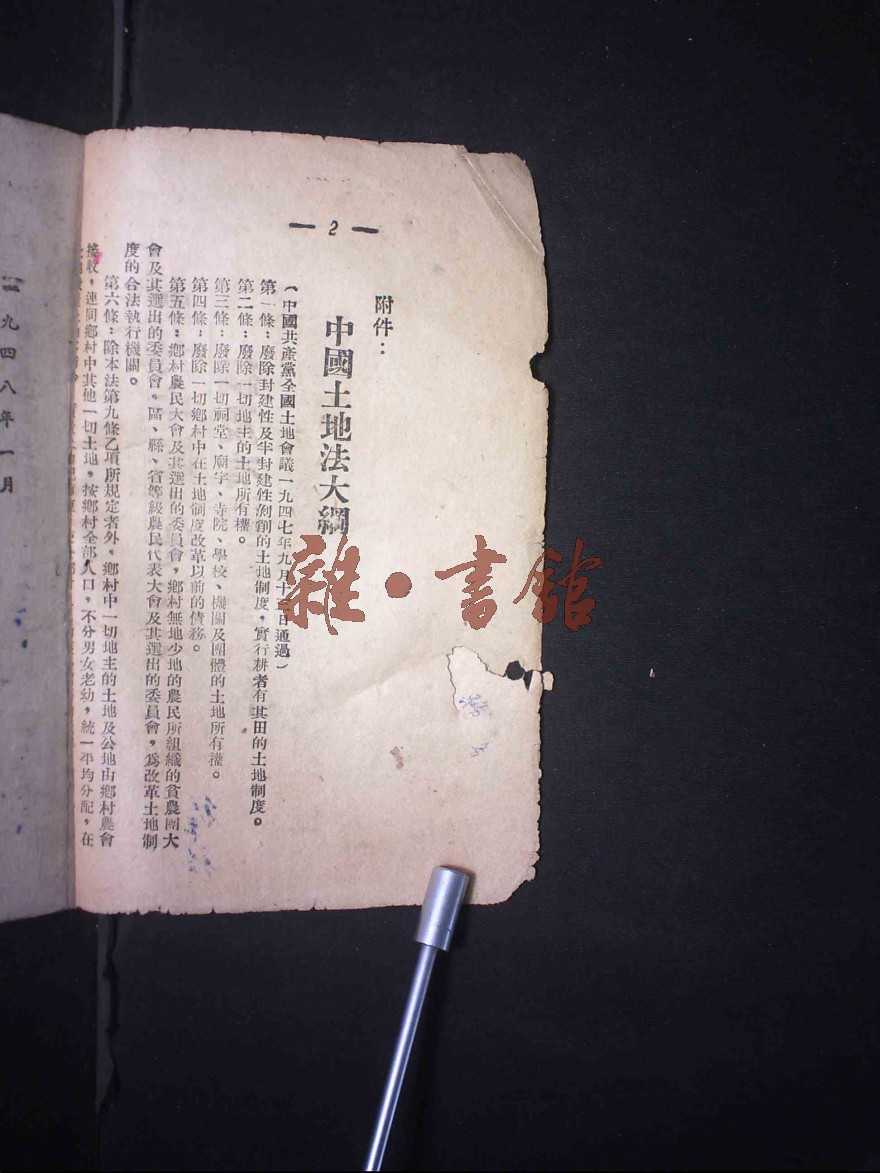 — 2 —
附件：
中國土地法大綱
（中國共產黨全國土地會議一九四七年九月十 日通過）
第一條：廢除封建性及半封建性剝削的土地制度，實行耕者有其田的土地制度。
第二條：廢除一切地主的土地所有權。
第三條：廢除一切祠堂、廟宇、寺院、學校、機關及團體的土地所有權。
第四條：廢除一切鄉村中在土地制度改革以前的債務。
第五條：鄉村農民大會及其選出的委員會，鄉村無地少地的農民所組織的貧農團大
會及其選出的委員會，區、縣、省等級農民代表大會及其選出的委員會，為改革土地制
度的合法執行機關。
第六條：除本法第九條乙項所規定者外，鄉村中一切地主的土地及公地由鄉村農會
接收，連同鄉村中其他一切土地，按鄉村全部人口，不分男女老幼，統一平均分配，在
一九四八年一月
雜·書館